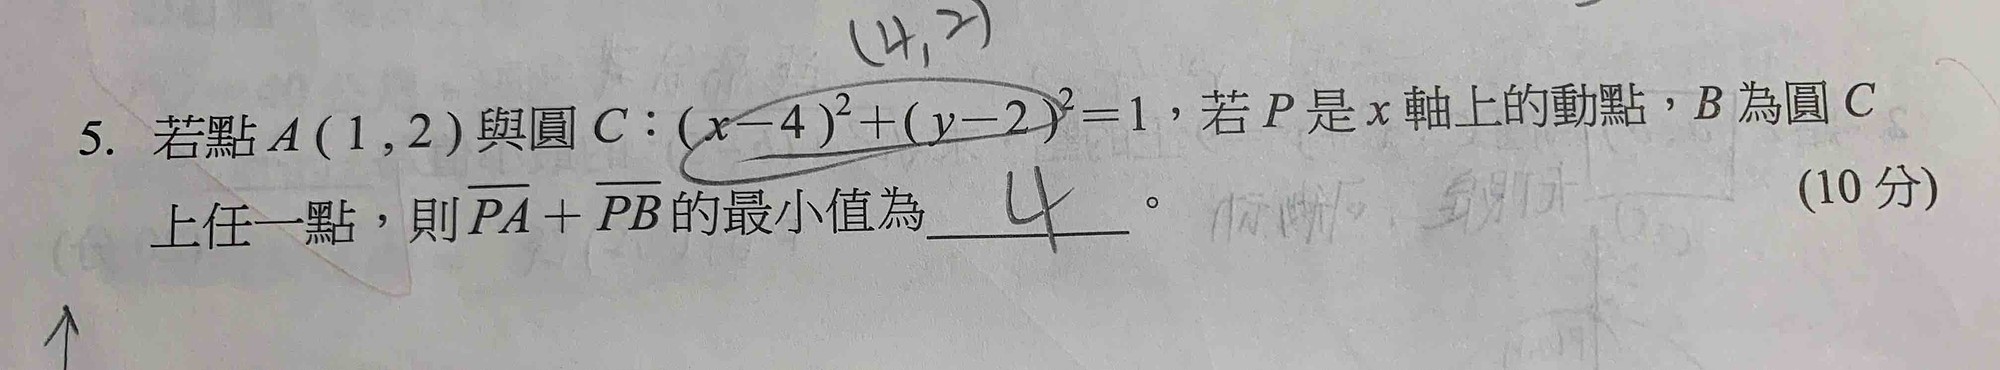 (4,2)
5. 若點 A ( 1 , 2 ) 與圓 C：( x－4 )²＋( y－2 )²＝1，若 P 是 x 軸上的動點，B 為圓 C
上任一點，則 P̅A̅＋ P̅B̅ 的最小值為 4 。
(10 分)
↑